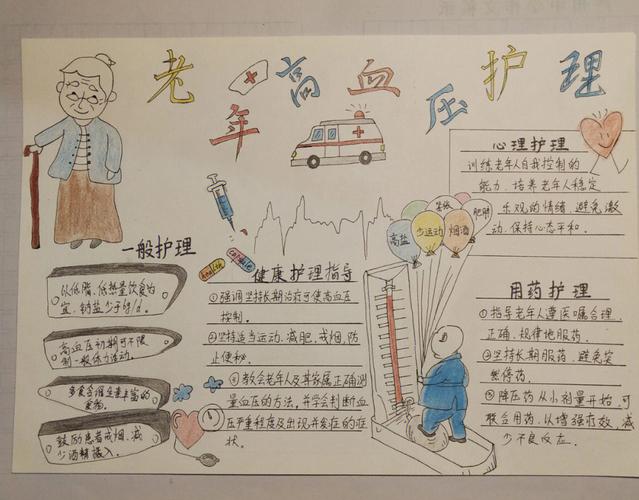 老年高血压护理
心理护理
训练老年人自我控制的
能力、培养老年人稳定
乐观的情绪、避免激
动、保持心态平和。
高盐
少运动
紧张
烟酒
肥胖
一般护理
以低脂、低热量饮食为
宜，钠盐少于6g/d。
高血压初期可不限
制一般体力活动。
多食含维生素丰富的
食物。
鼓励患者戒烟、减
少酒精摄入。
health
capsule
健康护理指导
①强调坚持长期治疗可使高血压
控制。
②坚持适当运动、减肥、戒烟，防
止便秘。
③教会老年人及其家属正确测
量血压的方法，并学会判断血
压严重程度及出现并发症的症
状。
用药护理
①指导老年人遵医嘱合理、
正确、规律地服药。
②坚持长期服药，避免突
然停药。
③降压药从小剂量开始，可
联合用药，以增强疗效，减
少不良反应。